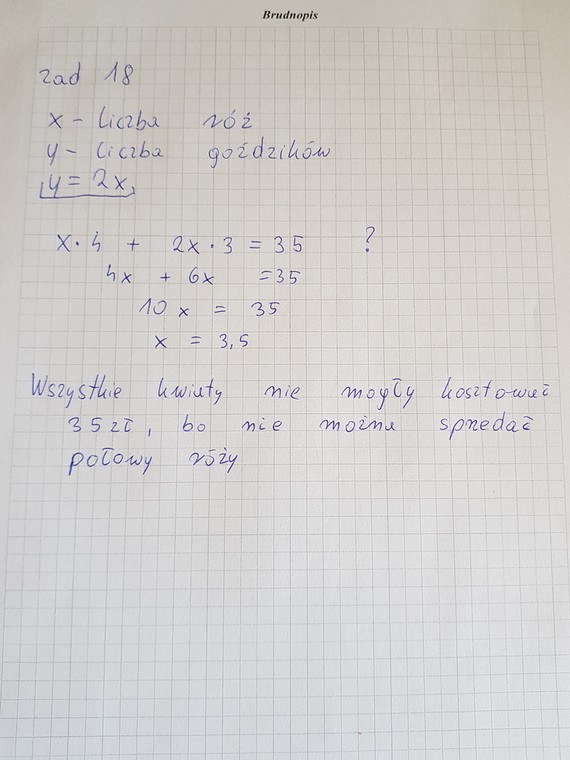 Brudnopis
zad 18
x - liczba róż
y - liczba goździków
y = 2x
x · 4 + 2x · 3 = 35 ?
4x + 6x = 35
10 x = 35
x = 3,5
Wszystkie kwiaty nie mogły kosztować
35 zł, bo nie można sprzedać
połowy róży